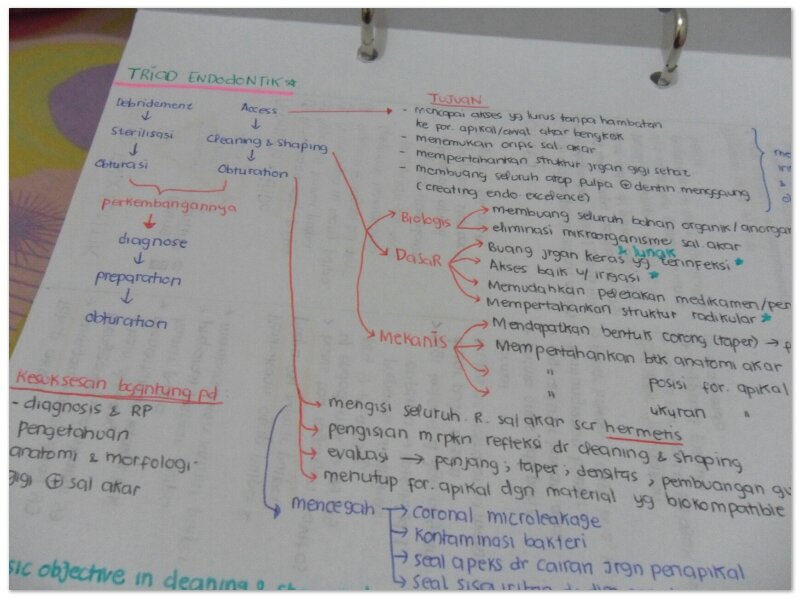 TRIAD ENDODONTIK
Debridement
Sterilisasi
Obturasi
Access
Cleaning & Shaping
Obturation
perkembangannya
diagnose
preparation
obturation
TUJUAN
- mencapai akses yg lurus tanpa hambatan
ke for. apikal/awal akar bengkok
- menemukan orifis sal. akar
- mempertahankan struktur jrgan gigi sehat
- membuang seluruh atap pulpa ⊕ dentin menggaung
(creating endo. excelence)
Biologis
membuang seluruh bahan organik/anorgan
eliminasi mikroorganisme sal. akar
Dasar
Buang jrgan keras & lunak yg terinfeksi
Akses baik u/ irigasi
Memudahkan peletakan medikamen/pen
Mempertahankan struktur radikular
Mekanis
Mendapatkan bentuk corong (taper) →
Mempertahankan btk anatomi akar
" posisi for. apikal
" ukuran "
mengisi seluruh R. sal akar scr hermetis
pengisian mrpkn refleksi dr cleaning & shaping
evaluasi → panjang ; taper ; densitas ; pembuangan
menutup for. apikal dgn material yg biokompatible
mencegah
coronal microleakage
kontaminasi bakteri
seal apeks dr cairan jrgn periapikal
seal sisa
Kesuksesan bgantung pd
- diagnosis & RP
pengetahuan
anatomi & morfologi
gigi ⊕ sal akar
sic objective in cleaning &